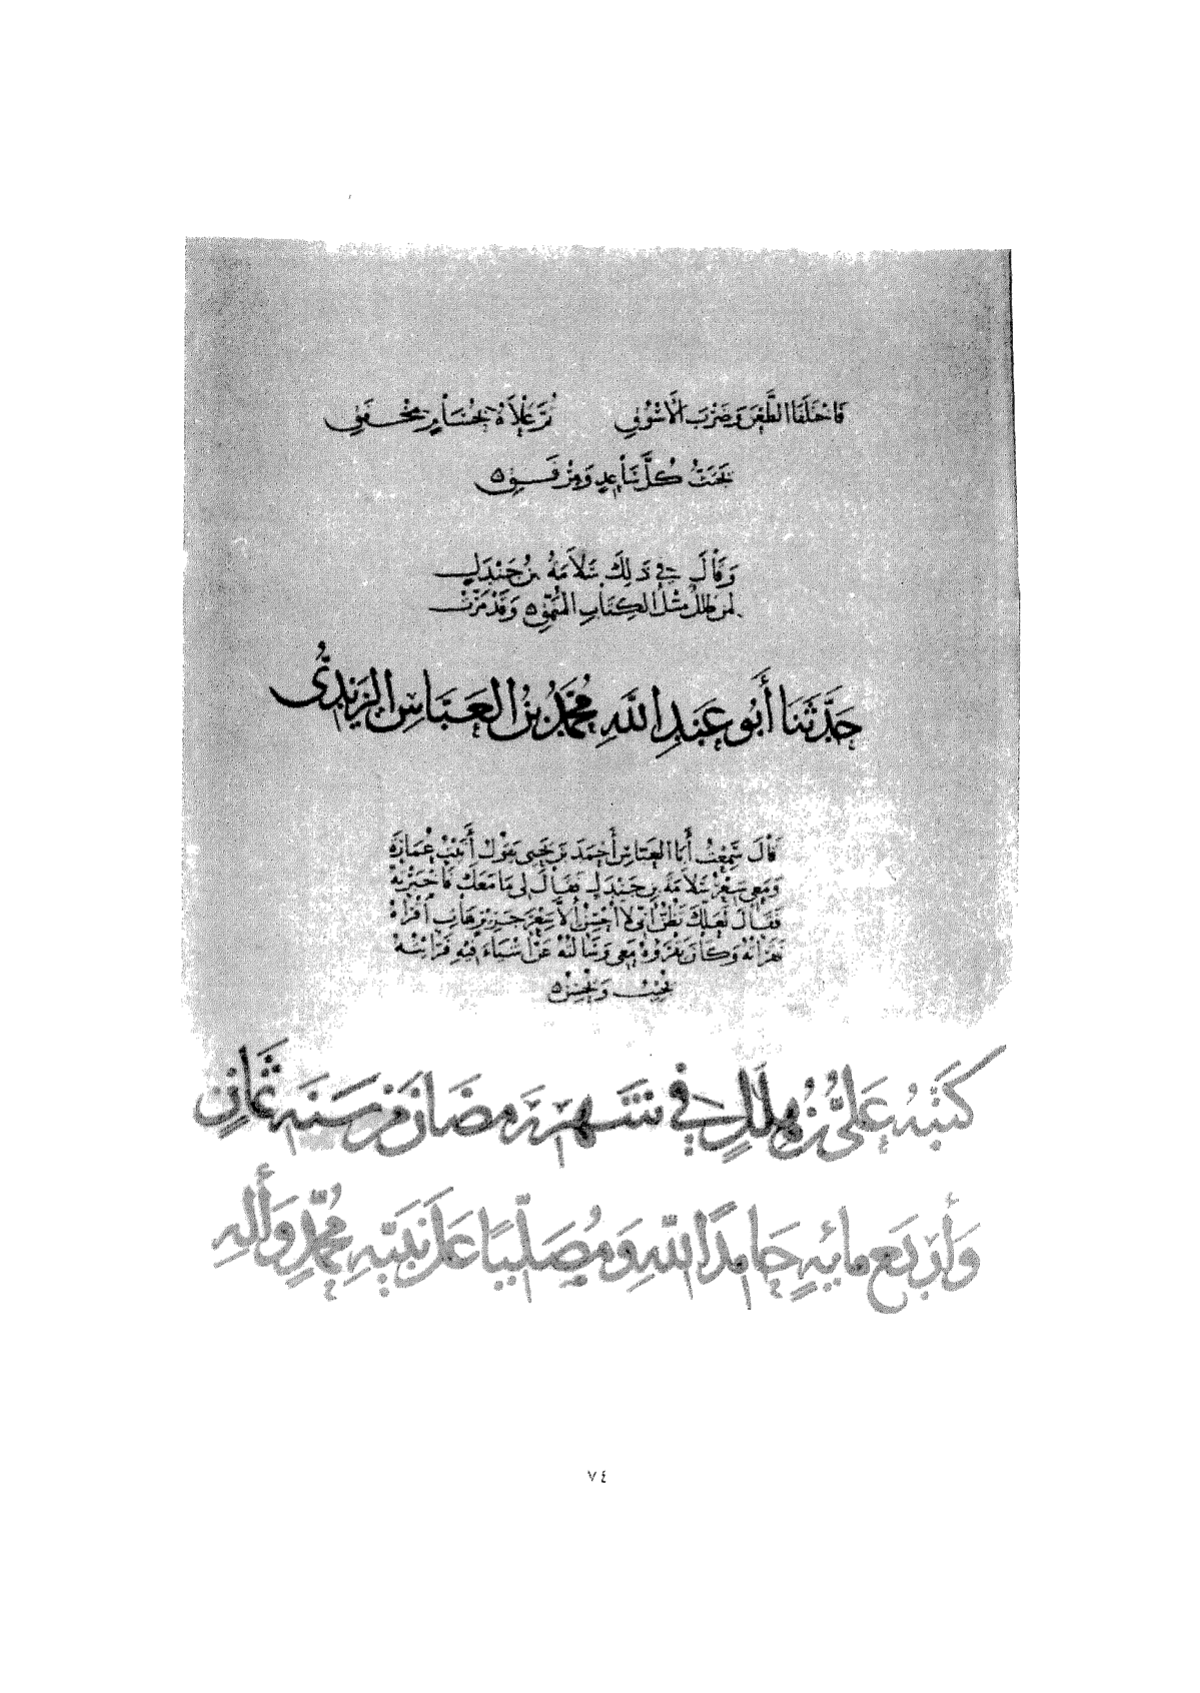 فَاخْتَلَفَا الطَّعْنَ وَضَرْبَ الأَسْوُقِ ثُمَّ عَلاَهُ بِحُسَامٍ مِخْفَقِ
تَحْتَ كُلِّ سَاعِدٍ وَمِرْفَقِ ه
وَقَالَ فِي ذَلِكَ سَلاَمَةُ بْنُ جَنْدَلٍ
لِمَنْ طَلَلٌ مِثْلُ الكِتَابِ المُنَمَّقِ ه وَقَدْ مَرَّتْ
حَدَّثَنَا أَبُو عَبْدِ اللَّهِ مُحَمَّدُ بْنُ العَبَّاسِ اليَزِيدِيُّ
قَالَ سَمِعْتُ أَبَا العَبَّاسِ أَحْمَدَ بْنَ يَحْيَى يَقُولُ أَتَيْتُ عُمَارَةَ
وَمَعِي شِعْرُ سَلاَمَةَ بْنِ جَنْدَلٍ فَقَالَ لِي مَا مَعَكَ فَأَخْبَرْتُهُ
فَقَالَ لَعَلَّكَ تَظُنُّ أَنِّي لاَ أُحْسِنُ إِلاَّ شِعْرَ اقْرَأْهُ
فَقَرَأْتُهُ وَكَانَ يَقْرَؤُهُ مَعِي وَسَأَلْتُهُ عَنْ أَشْيَاءَ فِيهِ فَرَأَيْتُهُ
يُجِيبُ وَيُحْسِنُ ه
كَتَبَهُ عَلِيُّ بْنُ هِلَالٍ فِي شَهْرِ رَمَضَانَ مِنْ سَنَةِ ثَمَانٍ
وَأَرْبَعِ مِائَةٍ حَامِدًا لِلَّهِ وَمُصَلِّيًا عَلَى نَبِيِّهِ مُحَمَّدٍ وَآلِهِ
٧٤